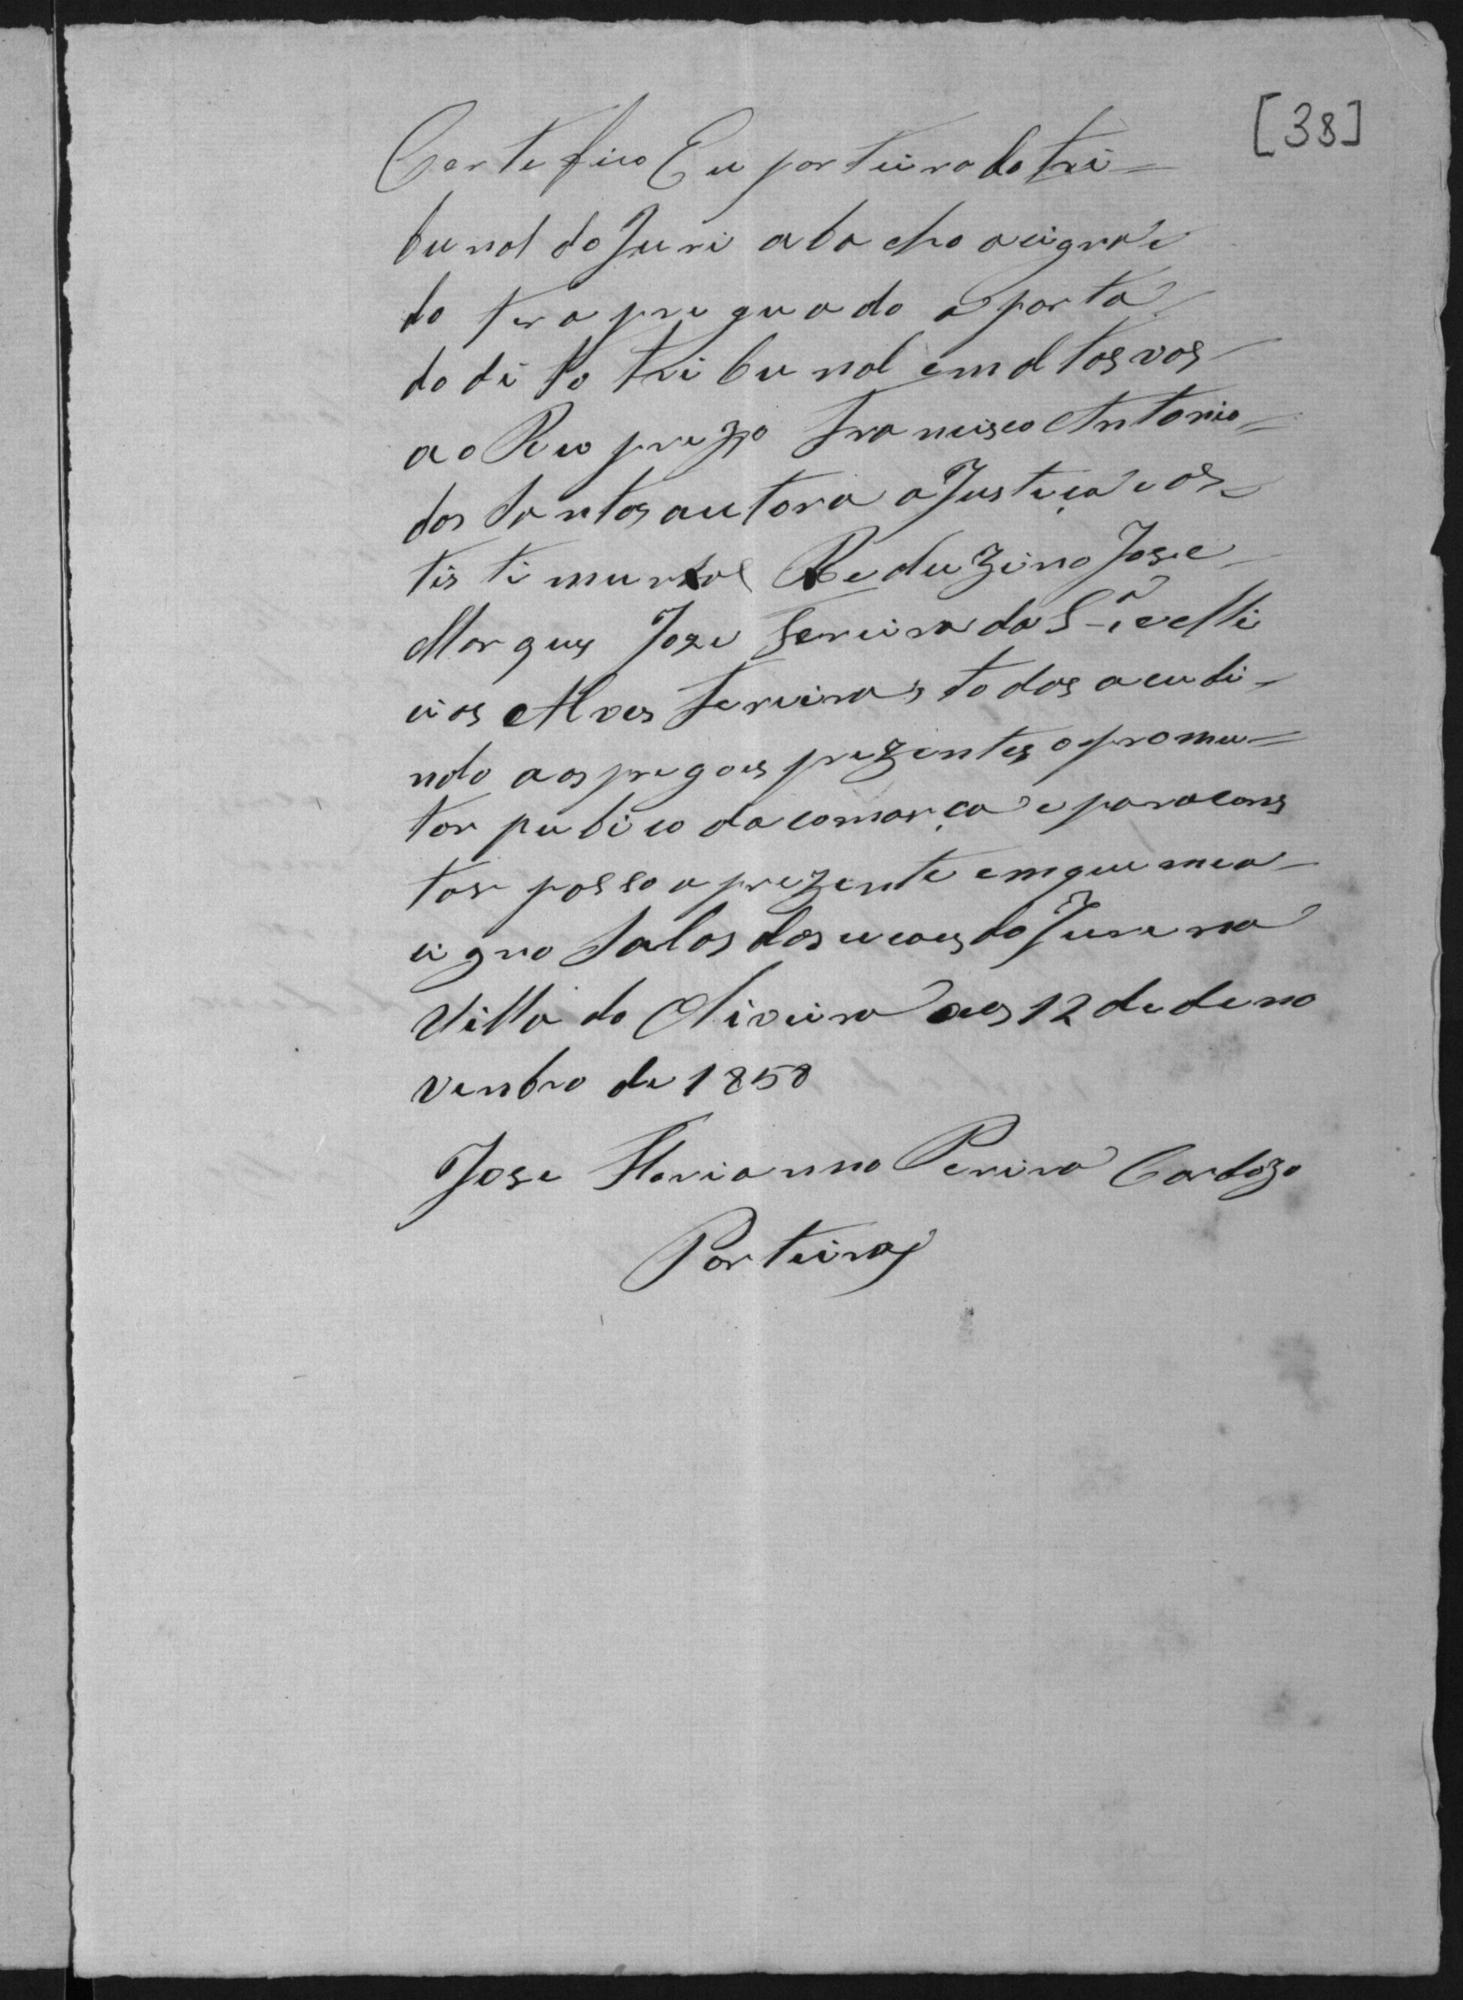 [38]
Certefico Eu porteiro do tri=
bunal do Juri abacho acigna
do ter apreguado a porta
do dito tribunal em altas vos
ao Reo prezo Francisco Antonio
dos Santos autora a Justiça e as
tistimunhas Reduzino Jose
Marques Joze Fereira da S.ª e Mi
cias Alves Fereira, todos acudi
ndo aos pregois prezentes o promu=
tor pubico da comarca e para cons
tar posso a prezente em que me a
cigno Salas das cecois do Jure na
Villa do Oliveira aos 12 de de no
venbro de 1858
Jose Florianno Perira Cardozo
Porteiro